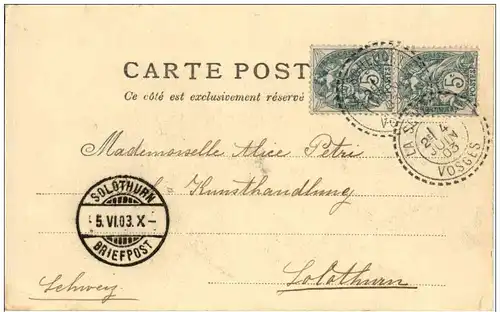 CARTE POST
Ce côté est exclusivement réservé
5
5
LA S
2E 4
JUIN
03
VOSGES
Mademoiselle Alice Petri
Kunsthandlung
SOLOTHURN
5.VI.03.X-
BRIEFPOST
Solothurn
Schweiz